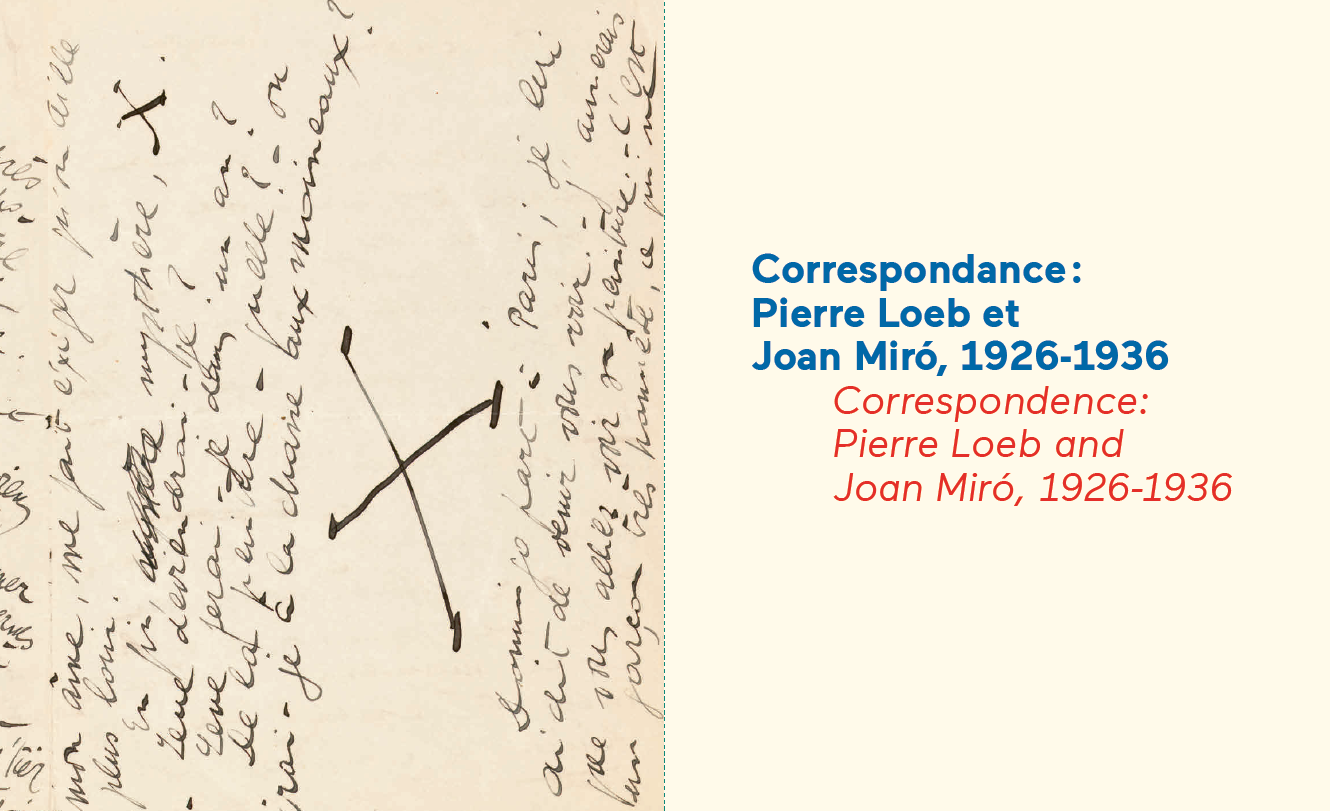 mon âme, me fait exiger qu'on aille
plus loin.
En fin, mystère, X.
Que deviendrai-je ?
Que ferai-je dans un an ?
De la peinture - quelle ? - ou
irai-je à la chasse aux moineaux ?
Domingo part à Paris, je lui
ai dit de venir vous voir.- j'aimerais
que vous alliez voir sa peinture.- C'est
un garçon très honnête, ce qui n'est
Correspondance :
Pierre Loeb et
Joan Miró, 1926-1936
Correspondence:
Pierre Loeb and
Joan Miró, 1926-1936